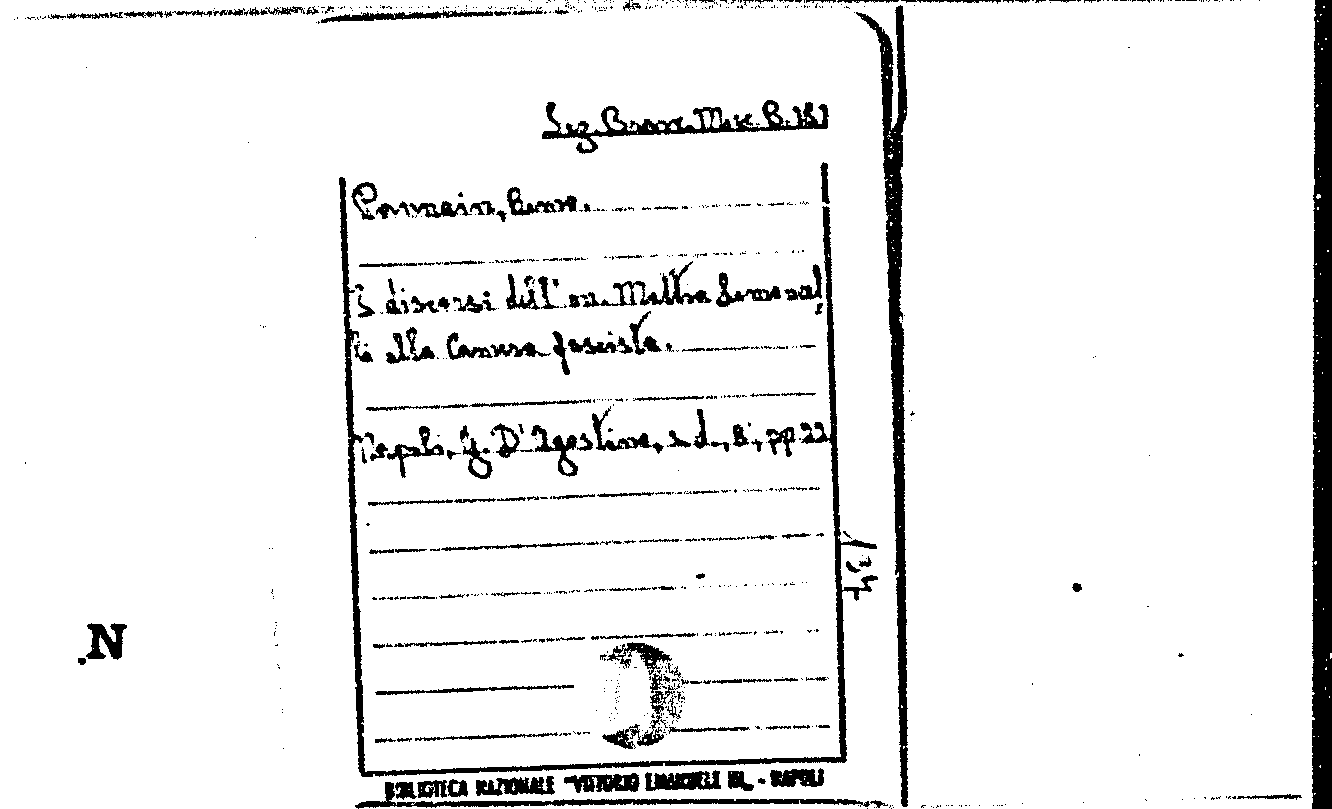 Sez. Branc. Misc. B. 181
I discorsi dell' on. Mattia Limoncel,
li alla Camera fascista.
Napoli, G. D'Agostino, s. d., 8°, pp 22
N
BIBLIOTECA NAZIONALE "VITTORIO EMANUELE III„ - NAPOLI